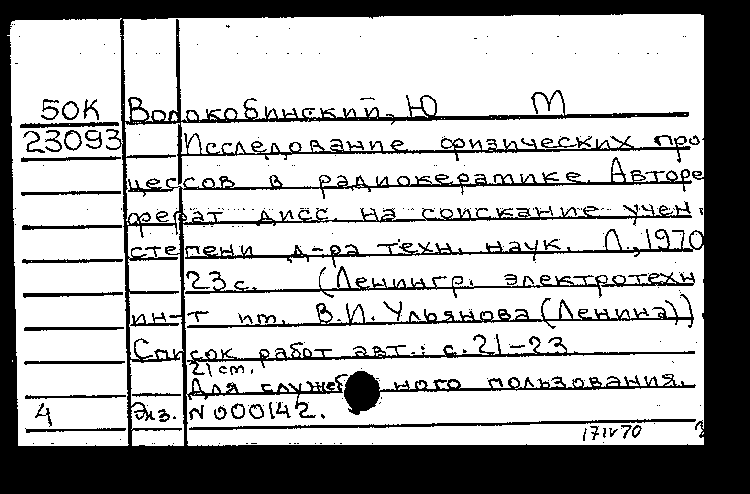 50К Волокобинский, Ю М
23093 Исследование физических про-
цессов в радиокерамике. Авторе
ферат дисс. на соискание учен.
степени д-ра техн. наук. Л., 1970
23 с. (Ленингр. электротехн.
ин-т им. В.И. Ульянова (Ленина)).
Список работ авт.: с. 21-23.
21 cm.
Для служебного пользования.
4 Экз. N 000142.
17IV70